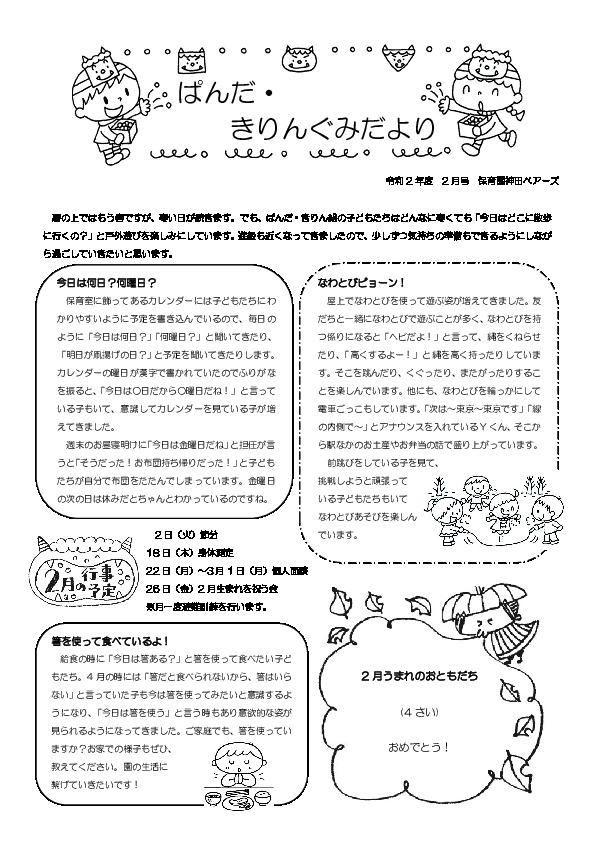 ぱんだ・
きりんぐみだより
令和２年度　２月号　保育園神田ベアーズ
暦の上ではもう春ですが、寒い日が続きます。でも、ぱんだ・きりん組の子どもたちはどんなに寒くても「今日はどこに散歩
に行くの？」と戸外遊びを楽しみにしています。進級も近くなってきましたので、少しずつ気持ちの準備もできるようにしなが
ら過ごしていきたいと思います。
今日は何日？何曜日？
保育室に飾ってあるカレンダーには子どもたちにわ
かりやすいように予定を書き込んでいるので、毎日の
ように「今日は何日？」「何曜日？」と聞いてきたり、
「明日が凧揚げの日？」と予定を聞いてきたりします。
カレンダーの曜日が漢字で書かれていたのでふりがな
を振ると、「今日は〇日だから〇曜日だね！」と言って
いる子もいて、意識してカレンダーを見ている子が増
えてきました。
週末のお昼寝明けに「今日は金曜日だね」と担任が言
うと「そうだった！お布団持ち帰りだった！」と子ども
たちが自分で布団をたたんでしまっています。金曜日
の次の日は休みだとちゃんとわかっているのですね。
なわとびピョーン！
屋上でなわとびを使って遊ぶ姿が増えてきました。友
だちと一緒になわとびで遊ぶことが多く、なわとびを持
つ係りになると「ヘビだよ！」と言って、縄をくねらせ
たり、「高くするよー！」と縄を高く持ったりしていま
す。そこを跳んだり、くぐったり、またがったりするこ
とを楽しんでいます。他にも、なわとびを輪っかにして
電車ごっこもしています。「次は～東京～東京です」「線
の内側で～」とアナウンスを入れているＹくん、そこか
ら駅なかのお土産やお弁当の話で盛り上がっています。
前跳びをしている子を見て、
挑戦しようと頑張って
いる子どもたちもいて
なわとびあそびを楽しん
でいます。
２月の行事予定
２日（火）節分
１８日（木）身体測定
２２日（月）～３月１日（月）個人面談
２６日（金）２月生まれを祝う会
※月一度避難訓練を行います。
箸を使って食べているよ！
給食の時に「今日は箸ある？」と箸を使って食べたい子ど
もたち。４月の時には「箸だと食べられないから、箸はいら
ない」と言っていた子も今は箸を使ってみたいと意識するよ
うになり、「今日は箸を使う」と言う時もあり意欲的な姿が
見られるようになってきました。ご家庭でも、箸を使ってい
ますか？お家での様子もぜひ、
教えてください。園の生活に
繋げていきたいです！
２月うまれのおともだち
（４さい）
おめでとう！